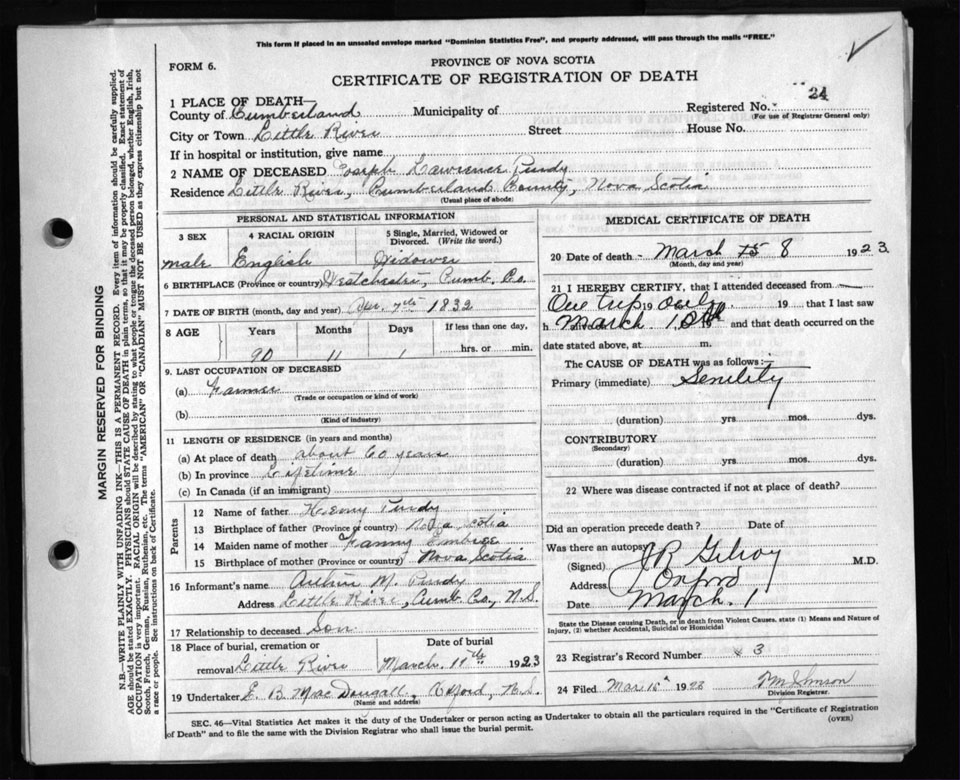 This form if placed in an unsealed envelope marked "Dominion Statistics Free", and properly addressed, will pass through the mails "FREE."
FORM 6.
PROVINCE OF NOVA SCOTIA
CERTIFICATE OF REGISTRATION OF DEATH
24
1 PLACE OF DEATH—
County of Cumberland Municipality of Registered No.
(For use of Registrar General only)
City or Town Little River Street House No.
If in hospital or institution, give name
2 NAME OF DECEASED Joseph Lawrence Purdy
Residence Little River, Cumberland County, Nova Scotia
(Usual place of abode)
PERSONAL AND STATISTICAL INFORMATION
3 SEX 4 RACIAL ORIGIN 5 Single, Married, Widowed or Divorced. (Write the word.)
male English Widower
6 BIRTHPLACE (Province or country) Westchester, Cumb. Co.
7 DATE OF BIRTH (month, day and year) Apr. 7th 1832
8 AGE Years Months Days If less than one day,
90 11 1 hrs. or min.
9. LAST OCCUPATION OF DECEASED
(a) Farmer
(Trade or occupation or kind of work)
(b)
(Kind of industry)
11 LENGTH OF RESIDENCE (in years and months)
(a) At place of death about 60 years
(b) In province Lifetime
(c) In Canada (if an immigrant)
Parents
12 Name of father Henry Purdy
13 Birthplace of father (Province or country) Nova Scotia
14 Maiden name of mother Fanny Embree
15 Birthplace of mother (Province or country) Nova Scotia
16 Informant's name Arthur M. Purdy
Address Little River, Cumb. Co., N.S.
17 Relationship to deceased Son
18 Place of burial, cremation or removal Little River
Date of burial
March 11th 1923
19 Undertaker E. B. MacDougall, Oxford, N.S.
(Name and address)
MEDICAL CERTIFICATE OF DEATH
20 Date of death - March 15 8 1923
(Month, day and year)
21 I HEREBY CERTIFY, that I attended deceased from
One trip 19 only 19 that I last saw
h March 10th 19 and that death occurred on the
date stated above, at m.
The CAUSE OF DEATH was as follows:
Primary (immediate) Senility
(duration) yrs mos. dys.
CONTRIBUTORY
(Secondary)
(duration) yrs. mos. dys.
22 Where was disease contracted if not at place of death?
Did an operation precede death? Date of
Was there an autopsy
(Signed) J R Gilroy M.D.
Address Oxford
Date March. 1
State the Disease causing Death, or in death from Violent Causes, state (1) Means and Nature of
Injury, (2) whether Accidental, Suicidal or Homicidal
23 Registrar's Record Number 3
24 Filed Mar 15th 1923
Division Registrar.
SEC. 46—Vital Statistics Act makes it the duty of the Undertaker or person acting as Undertaker to obtain all the particulars required in the "Certificate of Registration
of Death" and to file the same with the Division Registrar who shall issue the burial permit.
(OVER)
MARGIN RESERVED FOR BINDING
N.B.—WRITE PLAINLY WITH UNFADING INK—THIS IS A PERMANENT RECORD. Every item of information should be carefully supplied.
AGE should be stated EXACTLY. PHYSICIANS should STATE CAUSE OF DEATH in plain terms, so that it may be properly classified. Exact statement of
OCCUPATION is very important. RACIAL ORIGIN will be described by stating to what people or tongue the deceased person belonged, whether English, Irish,
Scotch, French, German, Russian, Ruthenian, etc. The terms "AMERICAN" or "CANADIAN" MUST NOT BE USED as they express citizenship but not
a race or people. See instructions on back of Certificate.